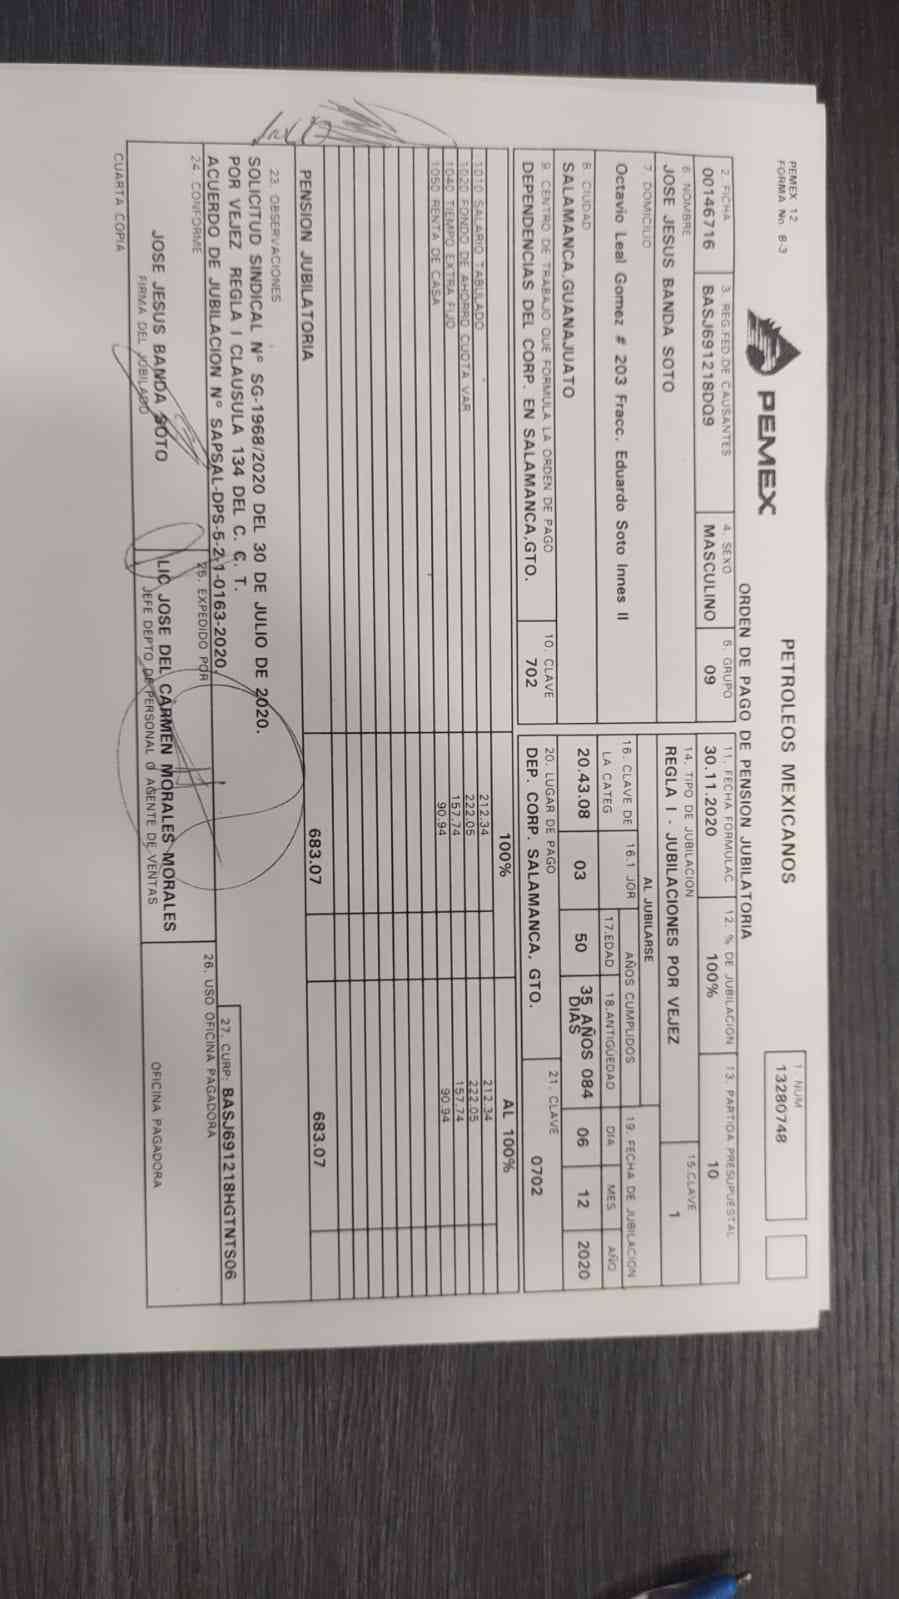 PEMEX 12
FORMA No. 6-3
PEMEX
PETROLEOS MEXICANOS
ORDEN DE PAGO DE PENSION JUBILATORIA
1 NUM
13280748
2. FICHA
00146716
3. REG.FED.DE CAUSANTES
BASJ691218DQ9
4. SEXO
MASCULINO
5. GRUPO
09
11. FECHA FORMULAC
30.11.2020
12. % DE JUBILACION
100%
13. PARTIDA PRESUPUESTAL
10
6. NOMBRE
JOSE JESUS BANDA SOTO
14. TIPO DE JUBILACION
REGLA I - JUBILACIONES POR VEJEZ
15.CLAVE
1
7. DOMICILIO
Octavio Leal Gomez # 203 Fracc. Eduardo Soto Innes II
AL JUBILARSE
16. CLAVE DE LA CATEG
16.1 JOR
AÑOS CUMPLIDOS
17.EDAD
18.ANTIGUEDAD
19. FECHA DE JUBILACION
DIA
MES
AÑO
8. CIUDAD
SALAMANCA,GUANAJUATO
20.43.08
03
50
35 AÑOS 084
DIAS
06
12
2020
9. CENTRO DE TRABAJO QUE FORMULA LA ORDEN DE PAGO
DEPENDENCIAS DEL CORP. EN SALAMANCA,GTO.
10. CLAVE
702
20. LUGAR DE PAGO
DEP. CORP. SALAMANCA, GTO.
21. CLAVE
0702
100%
AL 100%
1010 SALARIO TABULADO 212.34 212.34
1020 FONDO DE AHORRO CUOTA VAR 222.05 222.05
1040 TIEMPO EXTRA FIJO 157.74 157.74
1050 RENTA DE CASA 90.94 90.94
PENSION JUBILATORIA 683.07 683.07
23. OBSERVACIONES
SOLICITUD SINDICAL N° SG-1968/2020 DEL 30 DE JULIO DE 2020.
POR VEJEZ REGLA I CLAUSULA 134 DEL C. C. T.
ACUERDO DE JUBILACION N° SAPSAL-DPS-5-2.1-0163-2020
27. CURP: BASJ691218HGTNTS06
24. CONFORME
25. EXPEDIDO POR
26. USO OFICINA PAGADORA
JOSE JESUS BANDA SOTO
FIRMA DEL JUBILADO
LIC JOSE DEL CARMEN MORALES MORALES
JEFE DEPTO DE PERSONAL O AGENTE DE VENTAS
OFICINA PAGADORA
CUARTA COPIA